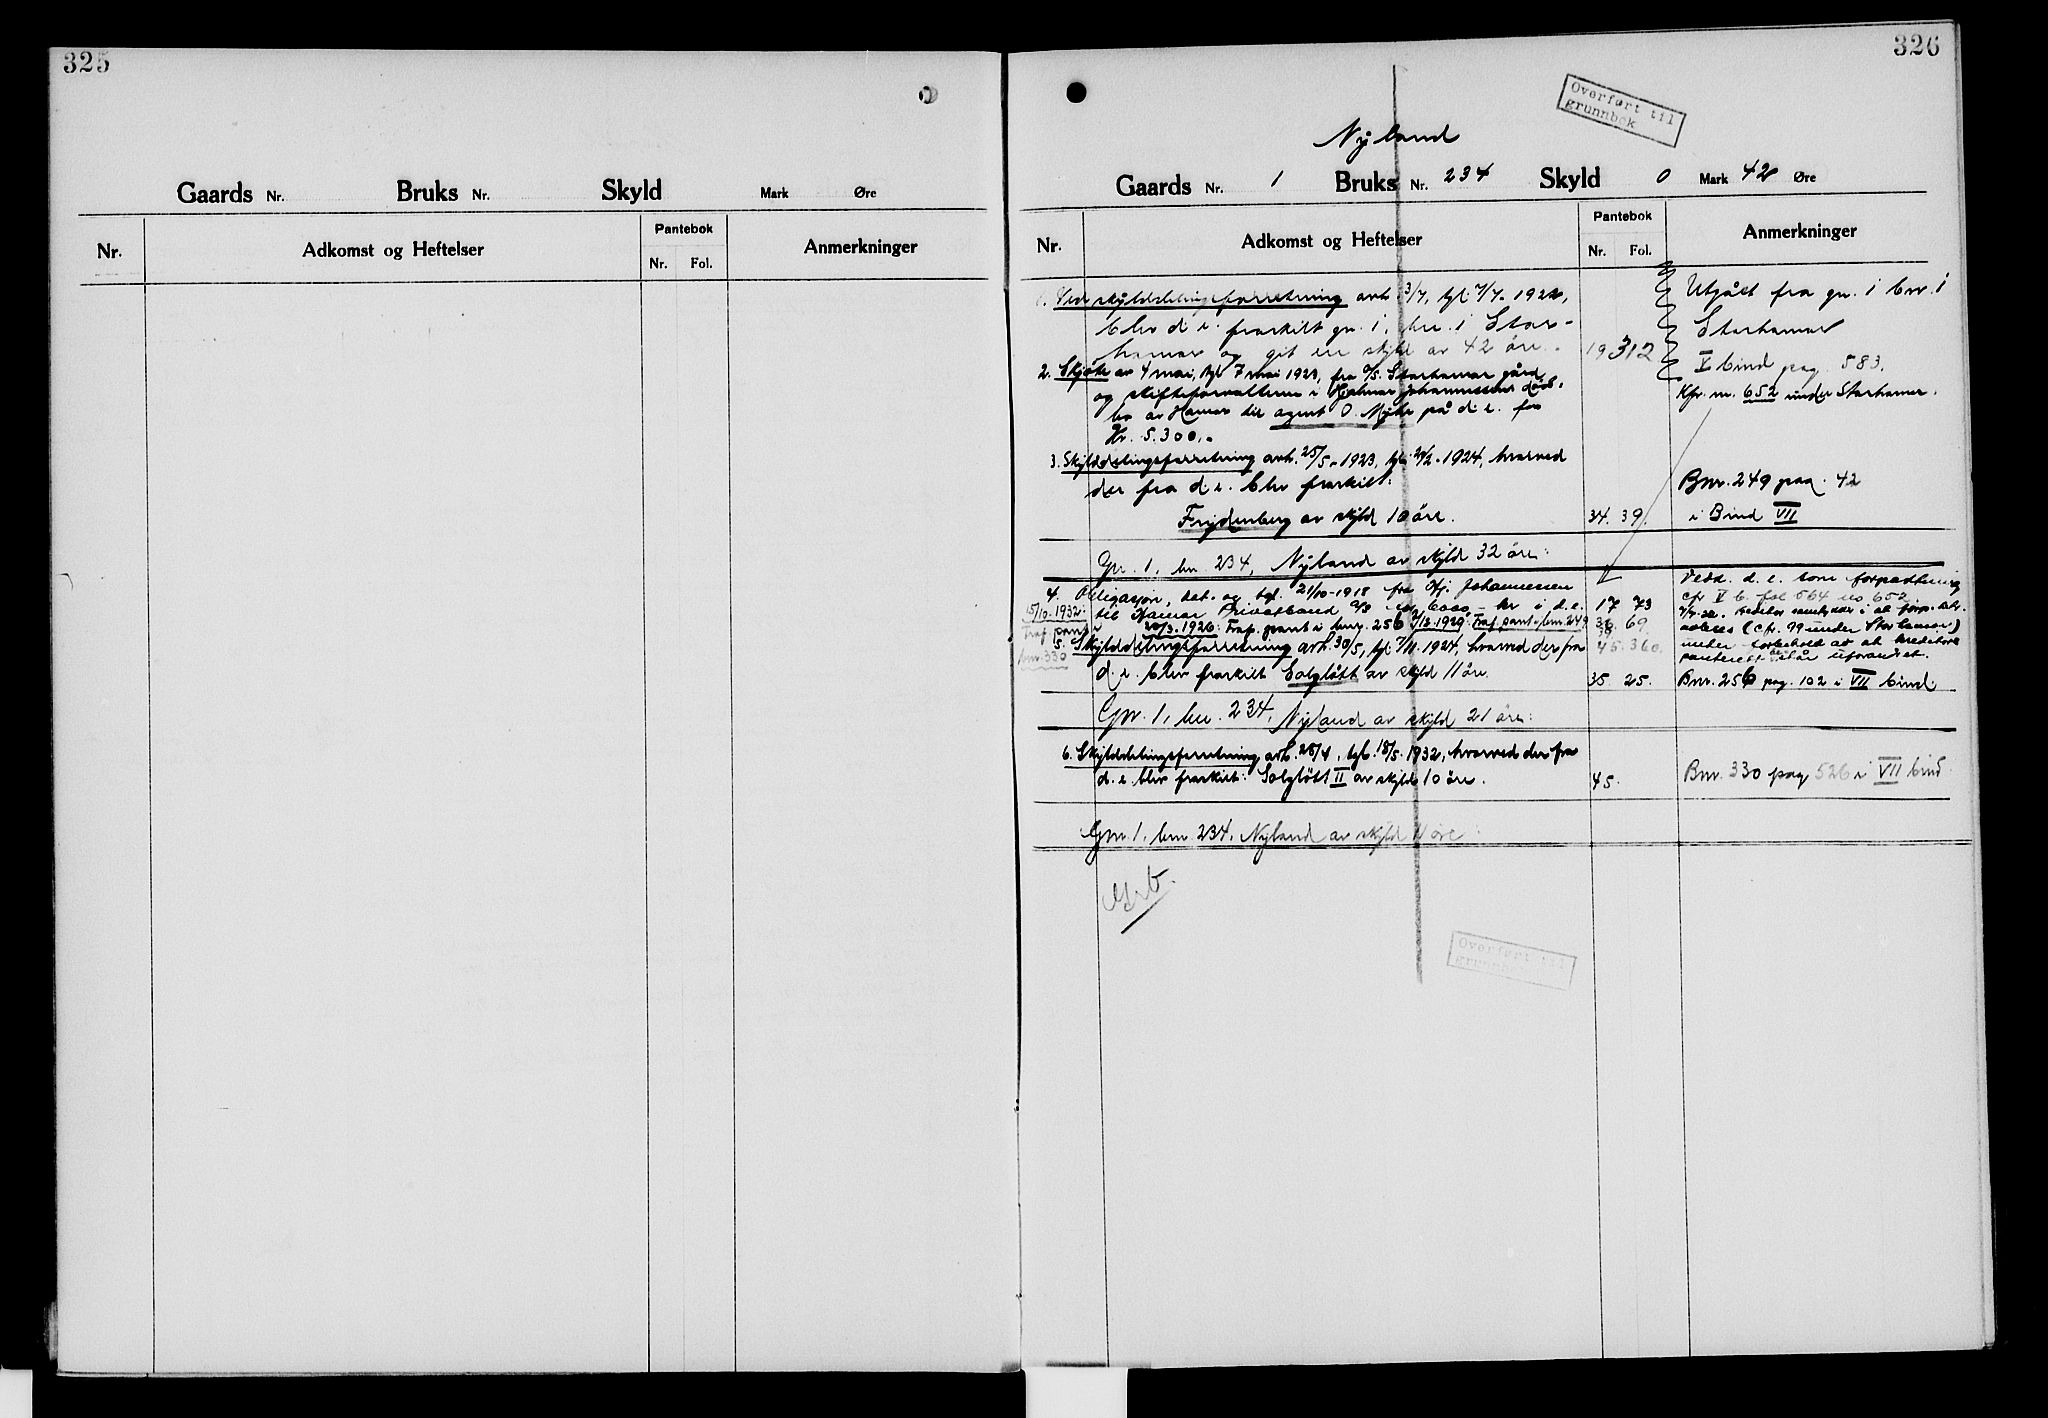 325
Gaards Nr. Bruks Nr. Skyld Mark Øre
Nr. Adkomst og Heftelser Pantebok Anmerkninger
Nr. Fol.
326
Overført til
grunnbok
Nyland
Gaards Nr. 1 Bruks Nr. 234 Skyld 0 Mark 42 Øre
Nr. Adkomst og Heftelser Pantebok Anmerkninger
Nr. Fol.
1. Ved skylddelingsforretning avh. 3/7, tgl. 7/7-1922,
blev d.e. fraskilt gn. 1, bn. 1 Stor-
hamar og git en skyld av 42 øre. 19 312
Utgått fra gn. 1 bnr. 1
Storhamar
V bind pag. 583.
Kfr. nr. 652 under Storhamar.
2. Skjøte av 4 mai, tgl. 7 mai 1923, fra A/S. Storhamar gård
og skifteforvalteren i Hjalmar Johannessens døds-
bo av Hamar til agent O. Myhr på d.e. for
Kr. 5.300,-
3. Skylddelingsforretning avh. 25/5-1923, tgl. 2-1924, hvorved
der fra d.e. blev fraskilt:
Frydenberg av skyld 10 øre. 34. 39.
Bnr. 249 pag. 42
i Bind VII
Gn. 1, bn. 234, Nyland av skyld 32 øre:
4. Obligasjon, dat. og tgl. 21/10-1918 fra Hj. Johannessen
til Hamar Privatbank A/S for 6000,- kr i d.e. 17 73
3.1926: Fraf. pant i bnr. 256 /12.1929: Fraf. pant i bnr. 249 36 69
15/10.1932:
Fraf. pant i
bnr. 330
45. 360.
Vedd. d.e. som forpaktning
cfr V b. fol 564 no 652.
under forbehold av at kreditors
panterett består uforandret.
5. Skylddelingsforretning avh. 30/5, tgl. 7/11.1924, hvorved der fra
d.e. blev fraskilt Solgløtt av skyld 11 øre. 35. 25.
Bnr. 256 pag. 102 i VII bind.
Gnr. 1, bn. 234, Nyland av skyld 21 øre:
6. Skylddelingsforretning avh. 28/4, tgl. 18/5.1932, hvorved der fra
d.e. blev fraskilt: Solgløtt II av skyld 10 øre. 45.
Bnr. 330 pag. 526 i VII bind.
Gnr. 1, bnr. 234, Nyland av skyld 11 øre:
Overført til
grunnbok